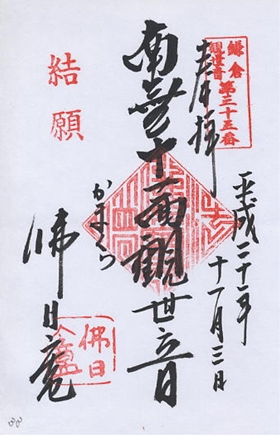 鎌倉
観世音
第三十五番
奉拝
平成二十一年
十一月三日
南無十一面観世音
かまくら
結願
佛日庵
佛日庵